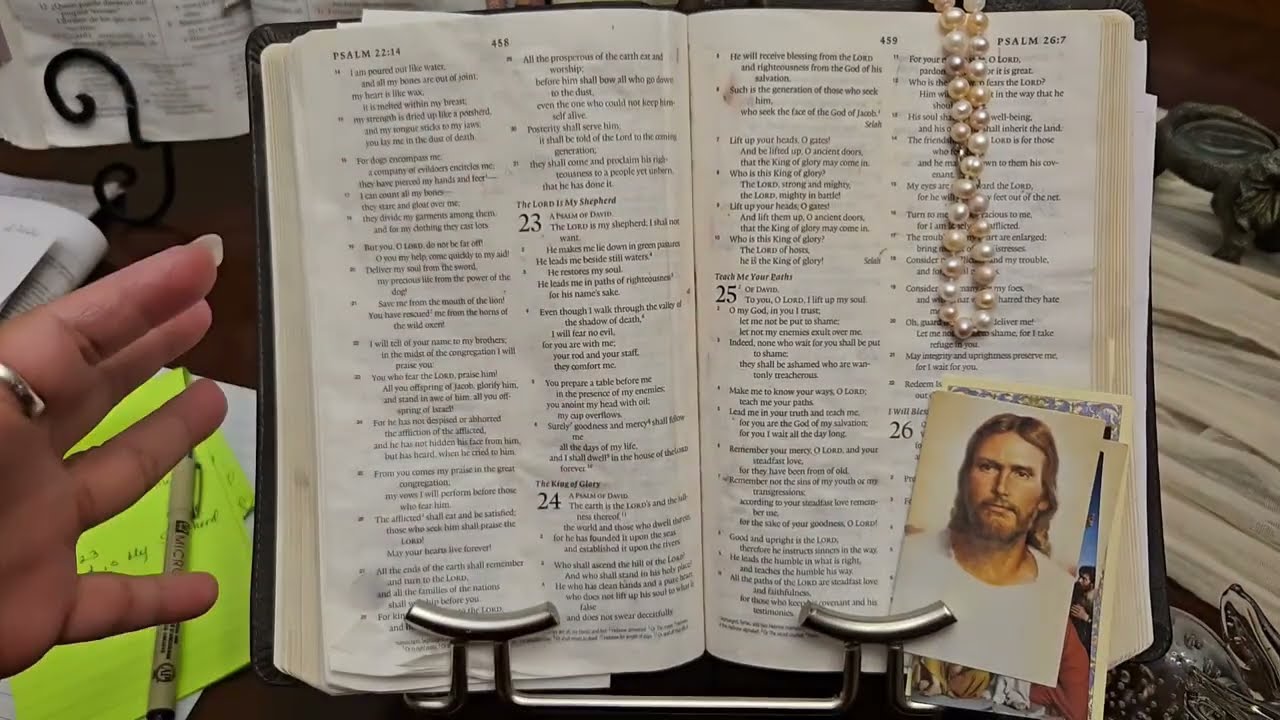 PSALM 22:14
458
14 I am poured out like water,
and all my bones are out of joint;
my heart is like wax;
it is melted within my breast;
15 my strength is dried up like a potsherd,
and my tongue sticks to my jaws;
you lay me in the dust of death.
16 For dogs encompass me;
a company of evildoers encircles me;
they have pierced my hands and feet
17 I can count all my bones—
they stare and gloat over me;
18 they divide my garments among them,
and for my clothing they cast lots
19 But you, O LORD, do not be far off!
O you my help, come quickly to my aid!
20 Deliver my soul from the sword,
my precious life from the power of the
dog!
21 Save me from the mouth of the lion!
You have rescued me from the horns of
the wild oxen!
22 I will tell of your name to my brothers;
in the midst of the congregation I will
praise you:
23 You who fear the LORD, praise him!
All you offspring of Jacob, glorify him,
and stand in awe of him, all you off-
spring of Israel!
24 For he has not despised or abhorred
the affliction of the afflicted,
and he has not hidden his face from him,
but has heard, when he cried to him.
25 From you comes my praise in the great
congregation;
my vows I will perform before those
who fear him.
26 The afflicted shall eat and be satisfied;
those who seek him shall praise the
LORD!
May your hearts live forever!
27 All the ends of the earth shall remember
and turn to the LORD,
and all the families of the nations
shall worship before you.
28 For the LORD,
and
29 All the prosperous of the earth eat and
worship;
before him shall bow all who go down
to the dust,
even the one who could not keep him-
self alive.
30 Posterity shall serve him;
it shall be told of the Lord to the coming
generation;
31 they shall come and proclaim his righ-
teousness to a people yet unborn,
that he has done it.
The LORD Is My Shepherd
23 A PSALM OF DAVID.
The LORD is my shepherd; I shall not
want.
2 He makes me lie down in green pastures
He leads me beside still waters.
3 He restores my soul.
He leads me in paths of righteousness
for his name's sake.
4 Even though I walk through the valley of
the shadow of death,
I will fear no evil,
for you are with me;
your rod and your staff,
they comfort me.
5 You prepare a table before me
in the presence of my enemies;
you anoint my head with oil;
my cup overflows.
6 Surely goodness and mercy shall follow
me
all the days of my life,
and I shall dwell in the house of the LORD
forever.
The King of Glory
24 A PSALM OF DAVID.
The earth is the LORD's and the full-
ness thereof,
the world and those who dwell therein,
2 for he has founded it upon the seas
and established it upon the rivers.
3 Who shall ascend the hill of the LORD?
And who shall stand in his holy place?
4 He who has clean hands and a pure heart,
who does not lift up his soul to what is
false
and does not swear deceitfully.
459
PSALM 26:7
5 He will receive blessing from the LORD
and righteousness from the God of his
salvation.
6 Such is the generation of those who seek
him,
who seek the face of the God of Jacob.
Selah
7 Lift up your heads, O gates!
And be lifted up, O ancient doors,
that the King of glory may come in.
8 Who is this King of glory?
The LORD, strong and mighty,
the LORD, mighty in battle!
9 Lift up your heads, O gates!
And lift them up, O ancient doors,
that the King of glory may come in.
10 Who is this King of glory?
The LORD of hosts,
he is the King of glory! Selah
Teach Me Your Paths
25 OF DAVID.
To you, O LORD, I lift up my soul.
2 O my God, in you I trust;
let me not be put to shame;
let not my enemies exult over me.
3 Indeed, none who wait for you shall be put
to shame;
they shall be ashamed who are wan-
tonly treacherous.
4 Make me to know your ways, O LORD;
teach me your paths.
5 Lead me in your truth and teach me,
for you are the God of my salvation;
for you I wait all the day long.
6 Remember your mercy, O LORD, and your
steadfast love,
for they have been from of old.
7 Remember not the sins of my youth or my
transgressions;
according to your steadfast love remem-
ber me,
for the sake of your goodness, O LORD!
8 Good and upright is the LORD;
therefore he instructs sinners in the way.
9 He leads the humble in what is right,
and teaches the humble his way.
10 All the paths of the LORD are steadfast love
and faithfulness,
for those who keep his covenant and his
testimonies.
11 For your O LORD,
pardon or it is great.
12 Who is the fears the LORD?
Him in the way that he
13 His soul well-being,
and his shall inherit the land.
14 The friend LORD is for those
who
and he to them his cov-
enant.
15 My eyes are the LORD,
for he feet out of the net.
16 Turn to me to me,
for I am afflicted.
17 The are enlarged;
bring
18 Consider and my trouble,
and
19 Consider my foes,
and hatred they hate
me.
20 Oh, guard deliver me!
Let me shame, for I take
refuge in you.
21 May integrity and uprightness preserve me,
for I wait for you.
22 Redeem
26
MICRO